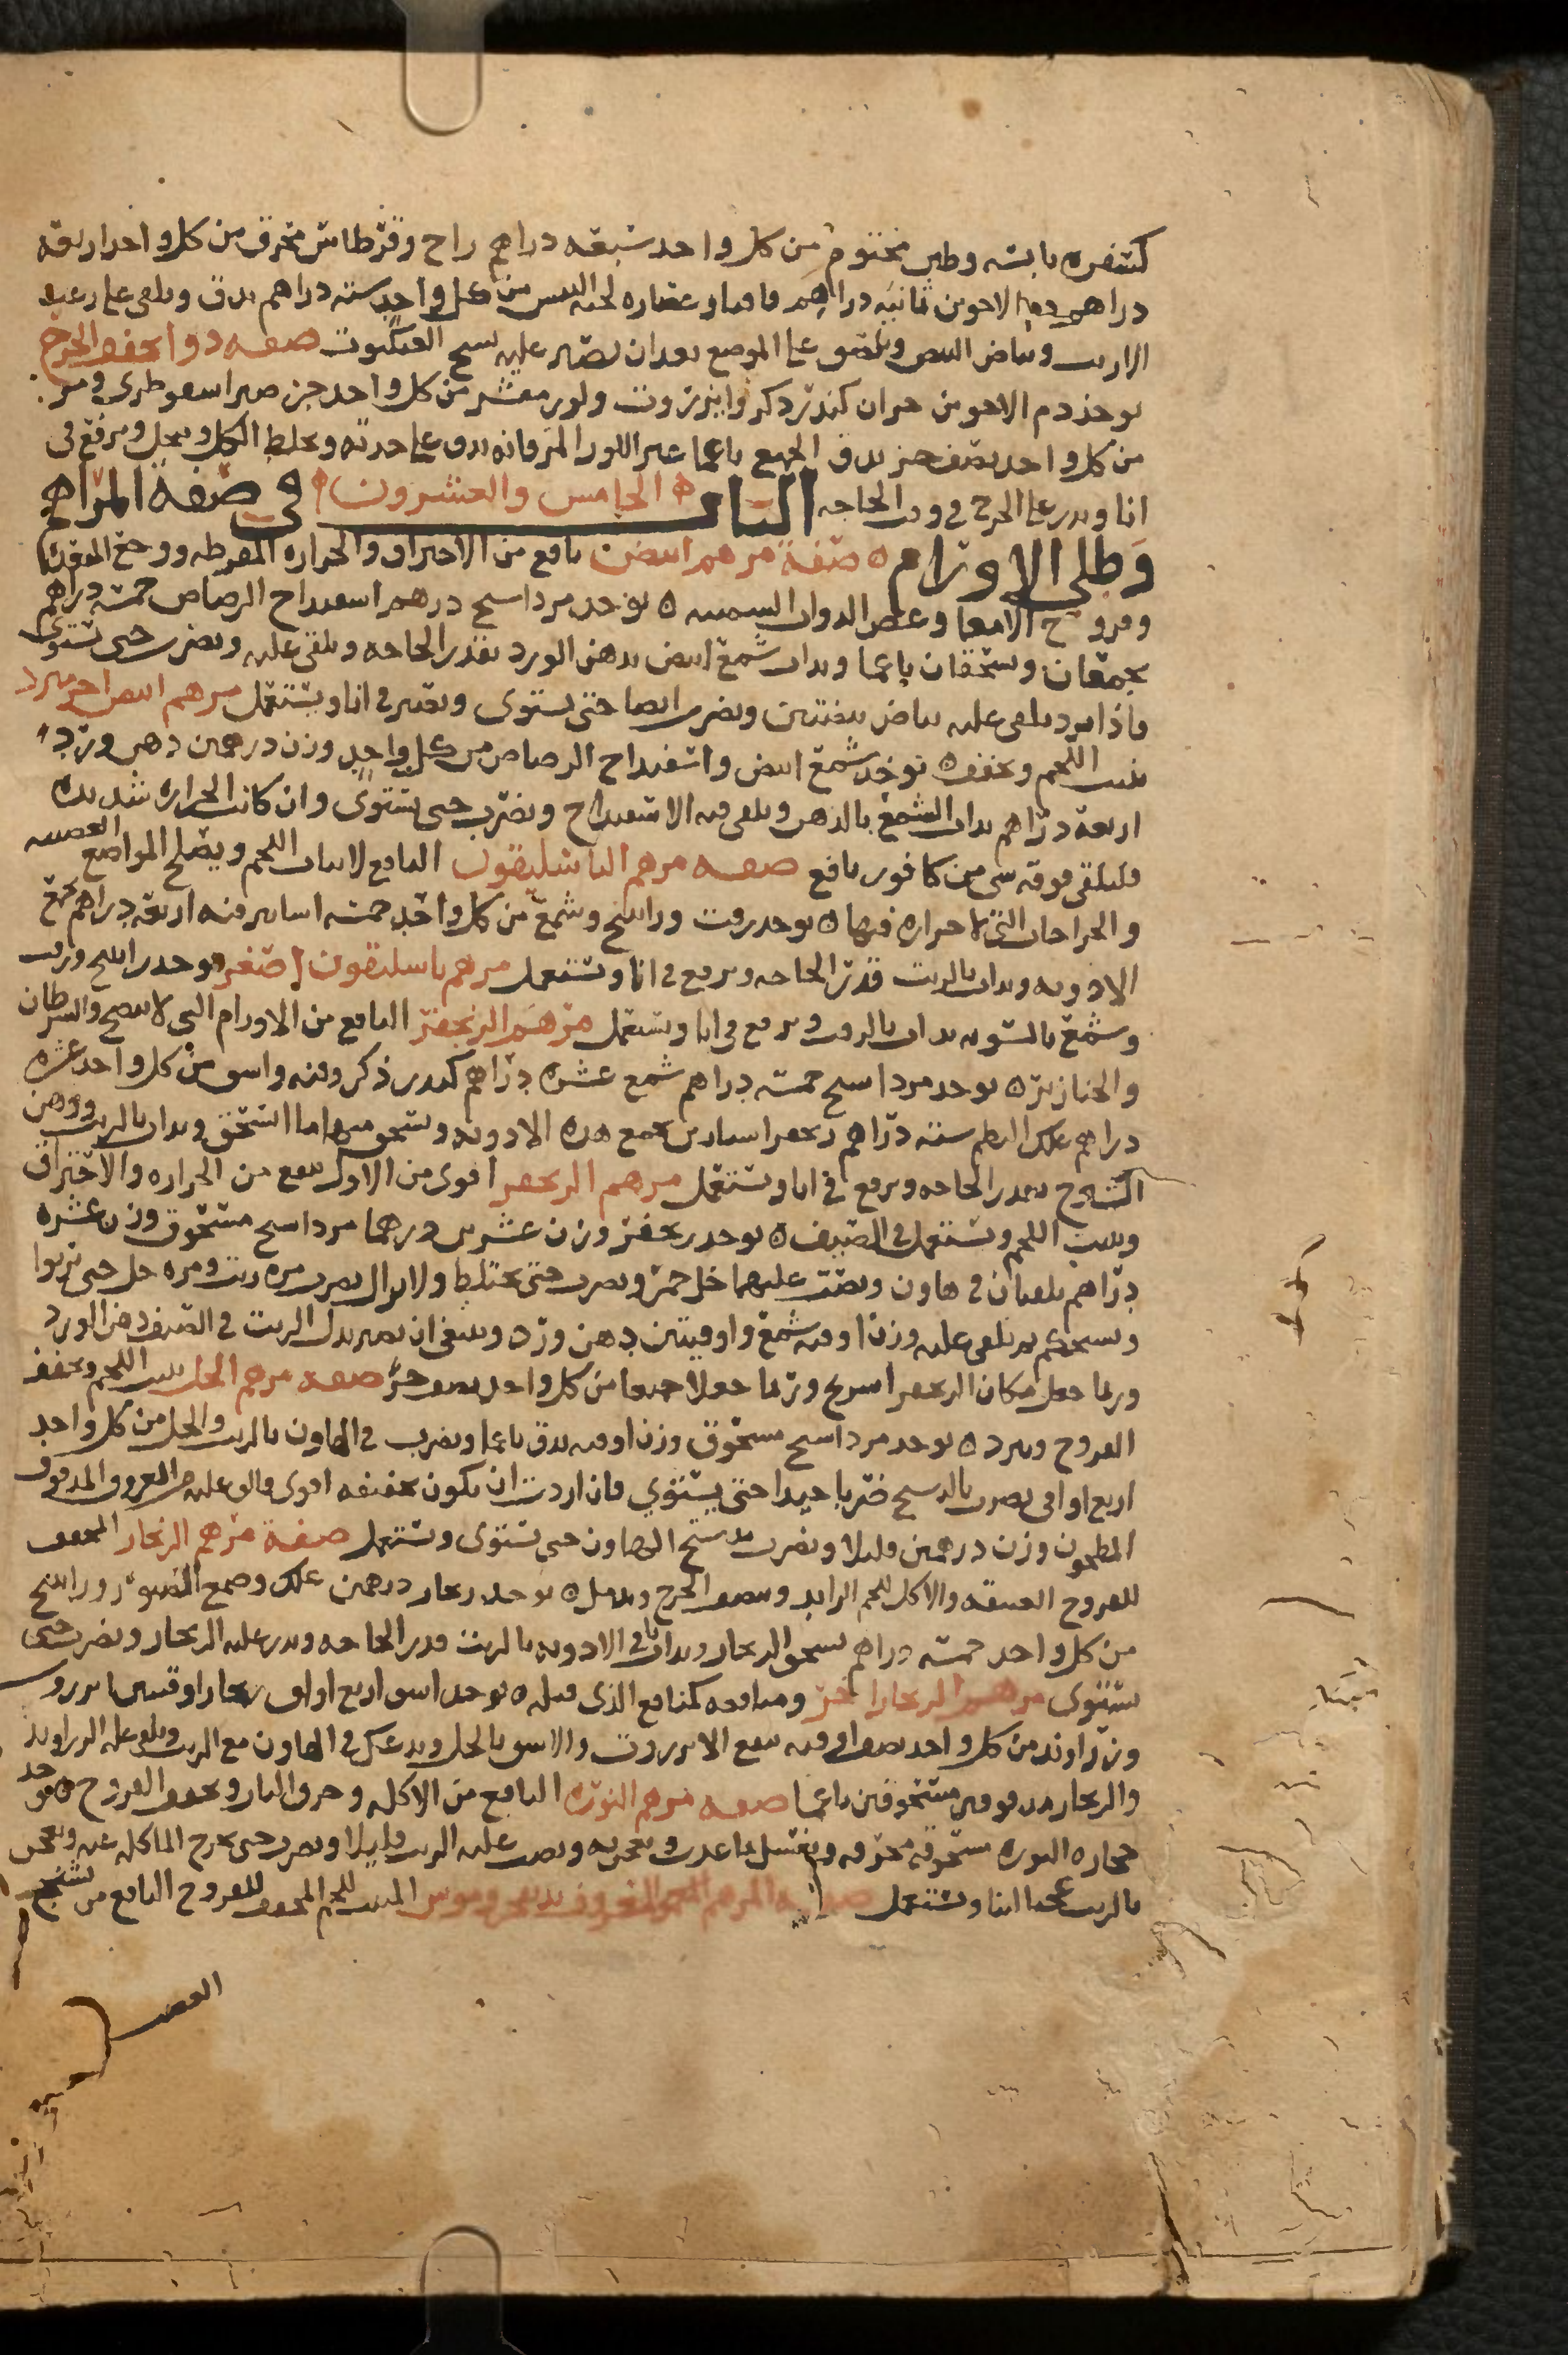 كسفره يابسه وطين مختوم من كل واحد سبعه دراهم زاج وقرطاس محرق من كل واحد اربعه
دراهم دم الاخوين ثمانيه دراهم قاقيا وعصاره لحيه التيس من كل واحد سته دراهم يدق ويلقى على
الارنب وبياض البيض ويلصق على الموضع بعد ان يصير عليه نسج العنكبوت صفه دوا يجفف الجرح
يوخذ دم الاخوين كندر ذكر وانزروت ولوز مقشر من كل واحد جز صبر اسقوطرى ومر
من كل واحد نصف جز يدق الجميع ناعما غير اللوز المر فانه يدق على حدته ويخلط الكل وينخل ويرفع فى
انا ويذر على الجرح فى وقت الحاجه الباب الخامس والعشرون فى صفة المراهم
وطلى الاورام صفة مرهم ابيض نافع من الاحتراق والحراره المفرطه ووجع المقعده
وقروح الامعا وعض الدواب السميه يوخذ مرداسنج درهم اسفيداج الرصاص خمسه دراهم
يجمعان ويسحقان ناعما ويداب شمع ابيض بدهن الورد بقدر الحاجه ويلقى عليه ويضرب حتى يستوى
فاذا برد يلقى عليه بياض بيضتين ويضرب ايضا حتى يستوى ويصير فى انا ويستعمل مرهم ابيض اخر يبرد
ينبت اللحم ويجففه يوخذ شمع ابيض واسفيداج الرصاص من كل واحد وزن درهمين دهن ورد
اربعة دراهم يداب الشمع بالدهن ويلقى فيه الاسفيداج ويضرب حتى يستوى وان كانت الحراره شديده
فليلقى فوقه شى من كافور نافع صفه مرهم الباسليقون النافع لانبات اللحم ويصلح المواضع العصبيه
والجراحات التى لا حراره فيها يوخذ زفت وراتينج وشمع من كل واحد خمسه اساتير قنه اربعه دراهم يجمع
الادويه ويداب بالزيت قدر الحاجه ويرفع فى انا ويستعمل مرهم باسليقون اصغر يوخذ راتينج وزفت
وشمع بالسويه يداب بالزيت ويرفع فى انا ويستعمل مرهم الزنجفر النافع من الاورام التى لا تنضج والسرطان
والخنازير يوخذ مرداسنج خمسه دراهم شمع عشره دراهم كندر ذكر وقنه واشق من كل واحد عشره
دراهم علك البطم سته دراهم زنجفر اسنادين يجمع هذه الادويه ويسحق منها ما انسحق ويداب بالزيت ودهن
الشيرج بقدر الحاجه ويرفع فى انا ويستعمل مرهم الزنجفر اقوى من الاول ينفع من الحراره والاحتراق
وينبت اللحم ويستعمل فى الصيف يوخذ زنجفر وزن عشرين درهما مرداسنج مسحوق وزن عشره
دراهم يلقيان فى هاون ويصب عليهما خل خمر ويضرب حتى يختلط ولا يزال يضرب مره زيت ومره خل حتى يربوا
ثم يلقى عليه وزن اوقيه شمع واوقيتين دهن ورد وينبغى ان يصير بدل الزيت فى الصيف دهن الورد
وربما جعل مكان الزنجفر اسرنج وربما جعلا جميعا من كل واحد نصف جز صفه مرهم الخل ينبت اللحم ويجفف
القروح ويبرد يوخذ مرداسنج مسحوق وزن اوقيه يدق ناعما ويضرب فى الهاون بالزيت والخل من كل واحد
اربع اواق يضرب بالدستج ضربا جيدا حتى يستوي فان اردت ان يكون تجفيفه اقوى فالق عليه من العروق المدقوق
المطحون وزن درهمين قليلا ويضرب بدستج الهاون حتى يستوى ويستعمل صفة مرهم الزنجار المجفف
للقروح العتيقه والاكل للحم الزايد ويدمل يوخذ زنجار درهمين علك وصمغ الصنوبر وراتينج
من كل واحد خمسه دراهم يسحق الزنجار ويداب باقى الادويه بالزيت قدر الحاجه ويذر عليه الزنجار ويضرب حتى
يستوى مرهم الزنجار اخر ومنافعه كمنافع الذى قبله يوخذ اشق اربع اواق زنجار اوقيتين انزروت
وزراوند من كل واحد نصف اوقيه ينقع الانزروت والاشق بالخل ويدعك فى الهاون مع الزيت ويلقى عليه الزراوند
والزنجار مدقوقين مسحوقين ناعما صفه مرهم النوره النافع من الاكله وحرق النار ويجفف القروح يوخذ
حجاره النوره مسحوقه محرقه ويغسل بما عذب ويصب عليه الزيت قليلا ويضرب حتى
بالزيت ويستعمل المنبت اللحم المجفف للقروح النافع من تشنج
العصب